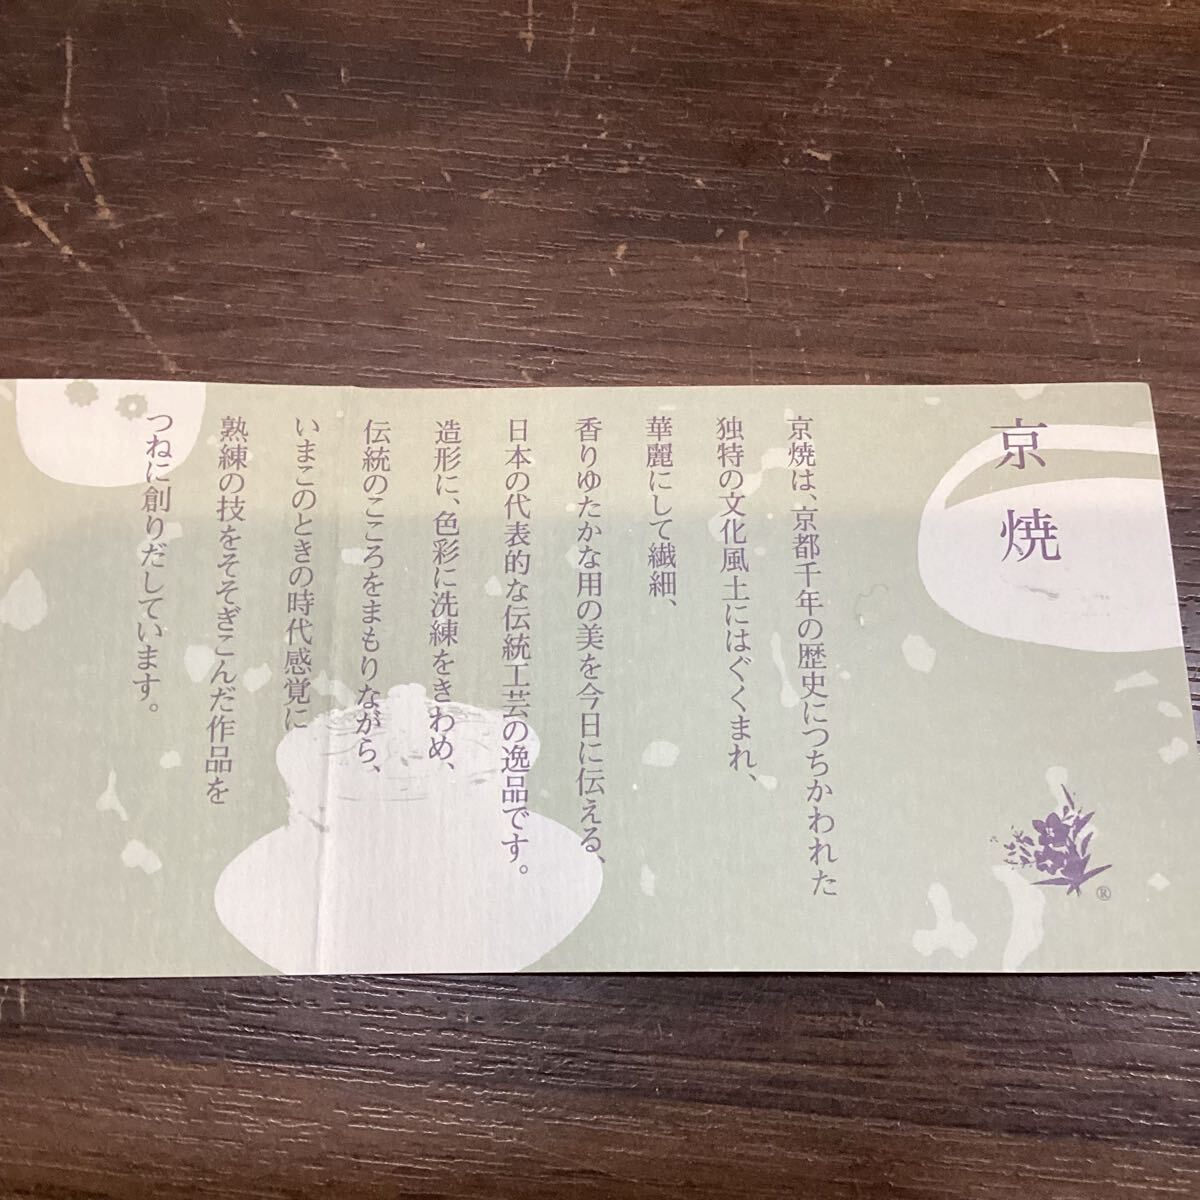 京焼
京焼は、京都千年の歴史につちかわれた
独特の文化風土にはぐくまれ、
華麗にして繊細、
香りゆたかな用の美を今日に伝える、
日本の代表的な伝統工芸の逸品です。
造形に、色彩に洗練をきわめ、
伝統のこころをまもりながら、
いまこのときの時代感覚に
熟練の技をそそぎこんだ作品を
つねに創りだしています。
®